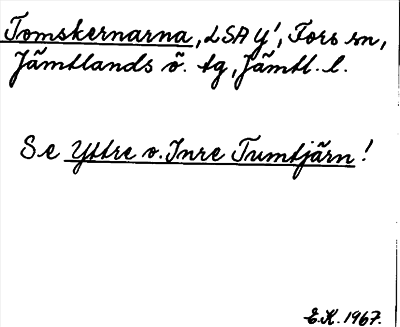 Tomskernarna, LSA Y', Fors sn,
Jämtlands ö. tg, Jämtl. l.
Se Yttre o. Inre Tumtjärn!
E.K. 1967.